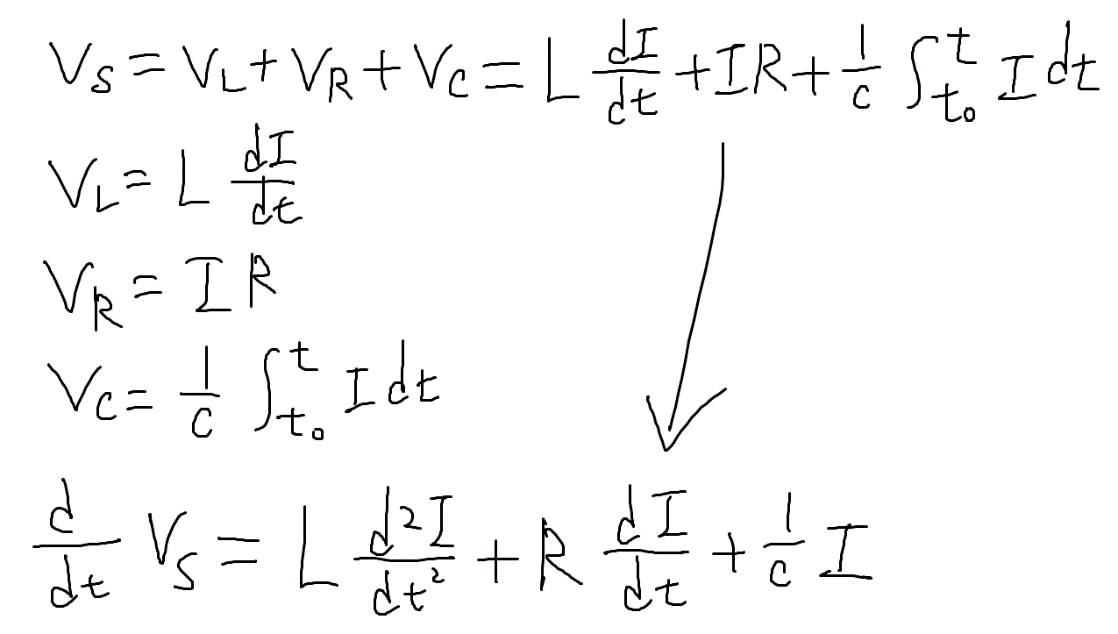 V_S = V_L + V_R + V_C = L dI/dt + IR + 1/C ∫_{t₀}^{t} I dt
V_L = L dI/dt
V_R = I R
V_C = 1/C ∫_{t₀}^{t} I dt
d/dt V_S = L d²I/dt² + R dI/dt + 1/C I